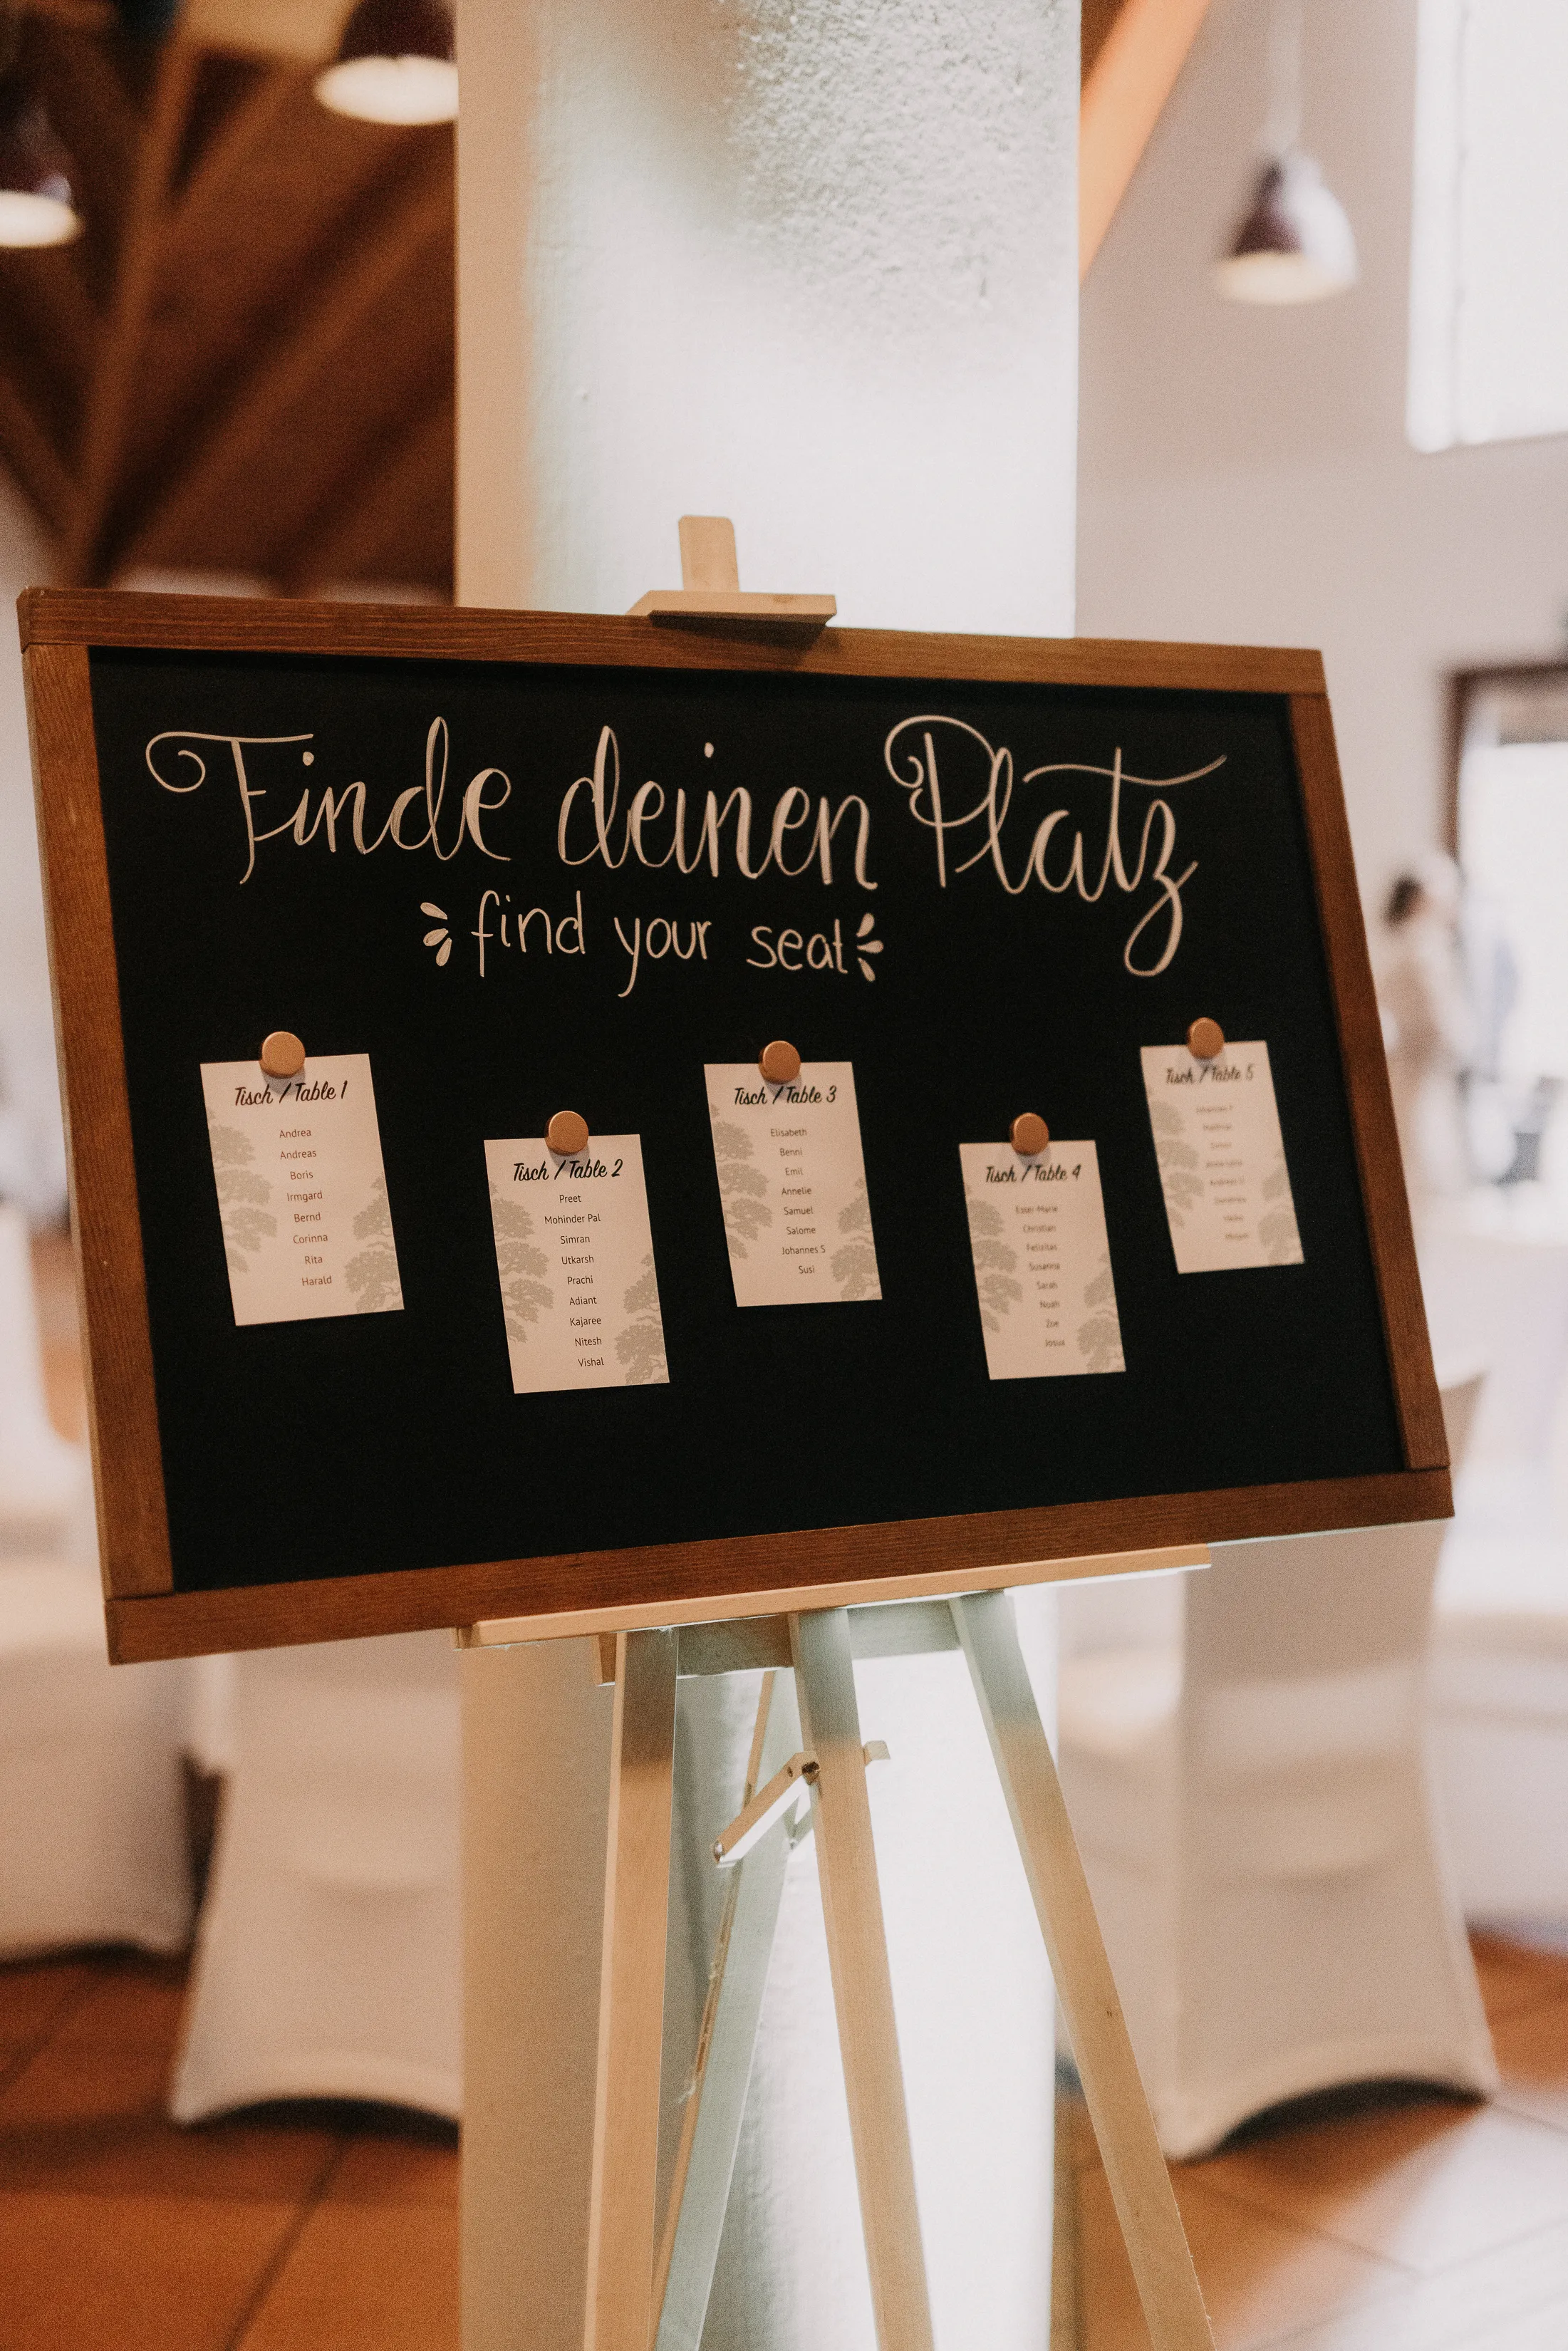 Finde deinen Platz
find your seat
Tisch / Table 1
Andrea
Andreas
Boris
Irmgard
Bernd
Corinna
Rita
Harald
Tisch / Table 2
Preet
Mohinder Pal
Simran
Utkarsh
Prachi
Adiant
Kajaree
Nitesh
Vishal
Tisch / Table 3
Elisabeth
Benni
Emil
Annelie
Samuel
Salome
Johannes S
Susi
Tisch / Table 4
Ester-Marie
Christian
Felizitas
Susanna
Sarah
Noah
Zoe
Josua
Tisch / Table 5